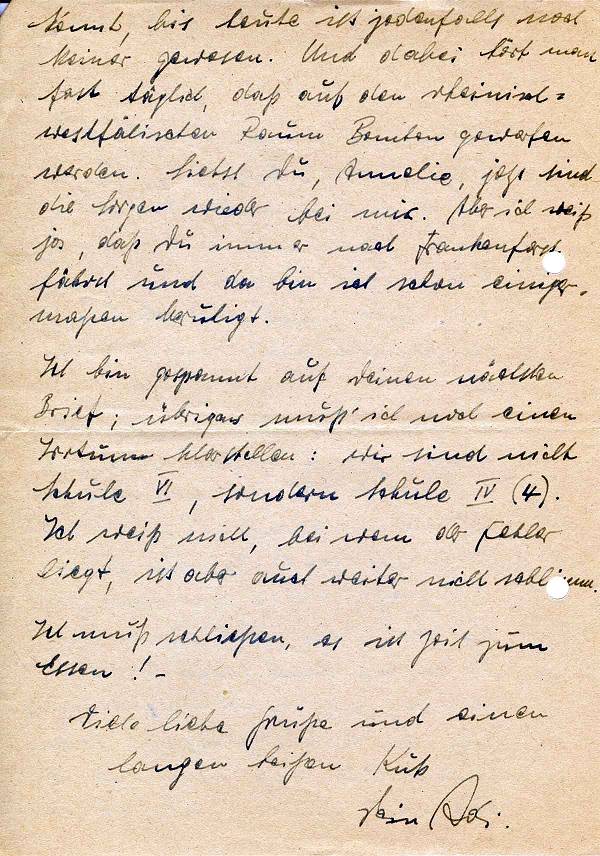 kommt, bis heute ist jedenfalls noch
keiner gewesen. Und dabei hört man
fast täglich, daß auf den rheinisch=
westfälischen Raum Bomben geworfen
werden. Siehst Du, Annelie, jetzt sind
die Sorgen wieder bei mir. Aber ich weiß
ja, daß Du immer nach Frankenforst
fährst und da bin ich schon einiger-
maßen beruhigt.
Ich bin gespannt auf Deinen nächsten
Brief; übrigens muß ich noch einen
Irrtum klarstellen: wir sind nicht
Schule VI, sondern Schule IV (4).
Ich weiß nicht, bei wem der Fehler
liegt, ist aber auch weiter nicht schlimm.
Ich muß schließen, es ist Zeit zum
Essen! -
Viele liebe Grüße und einen
langen heißen Kuß
Dein